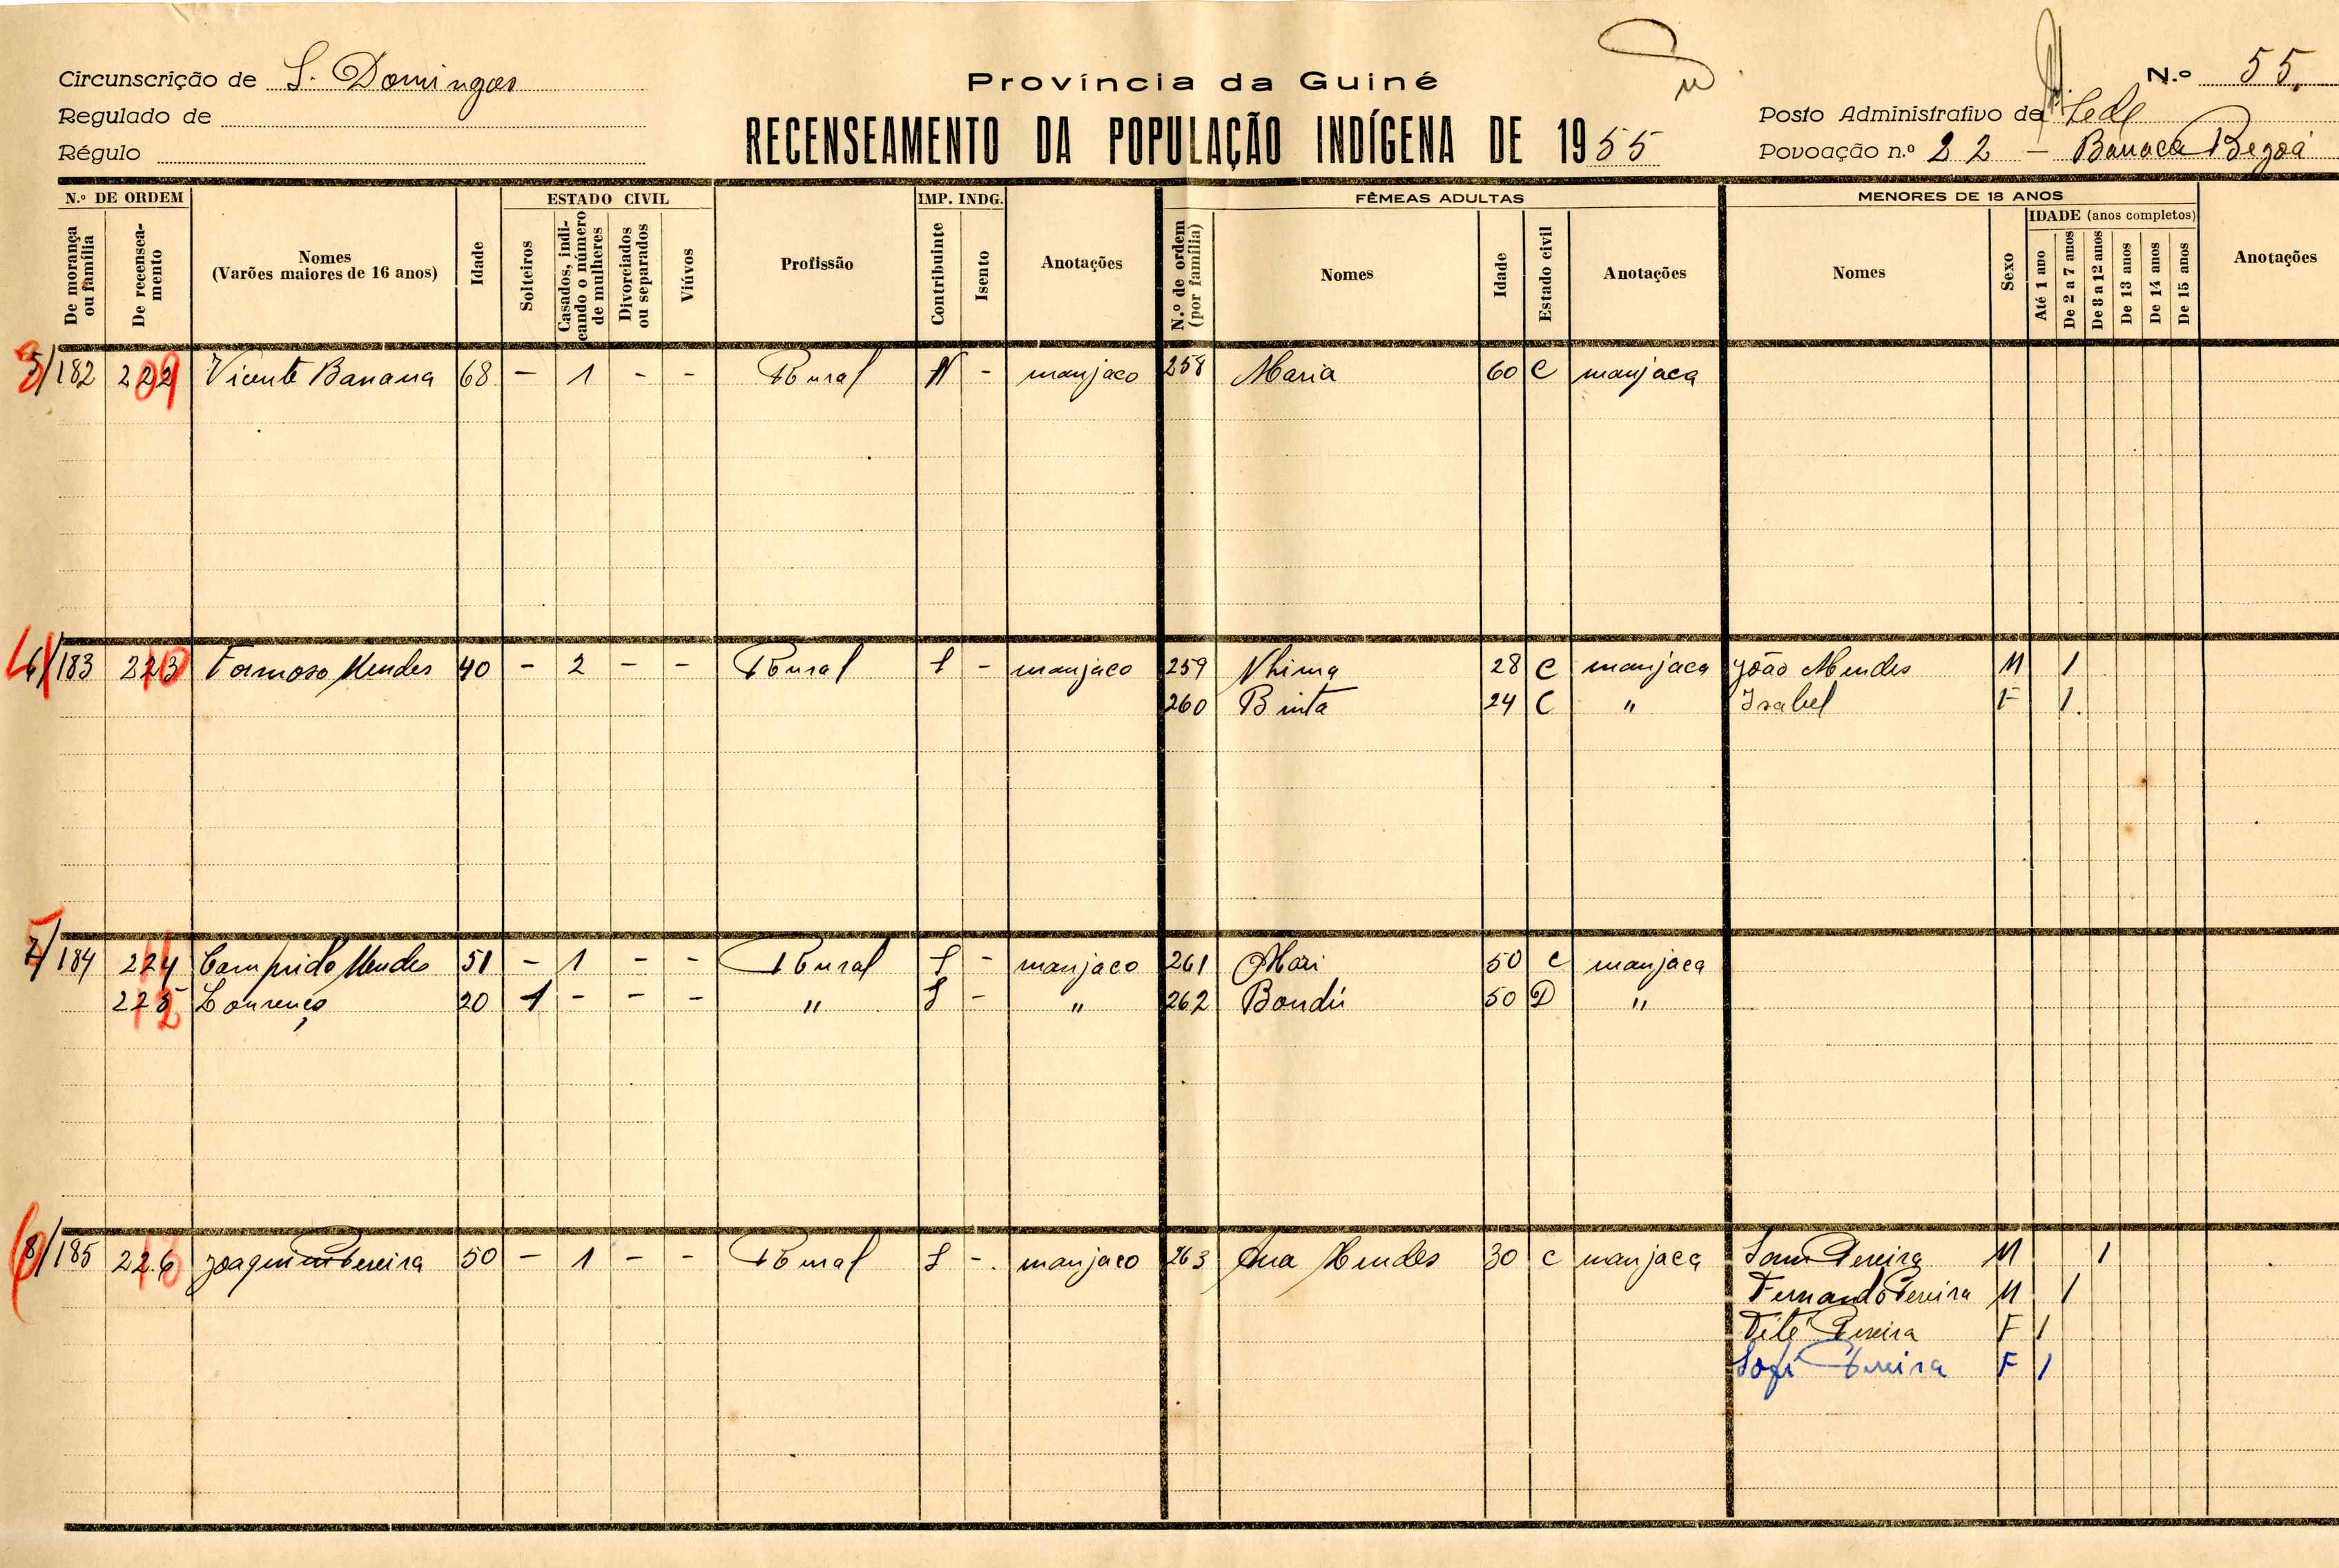 Circunscrição de S. Domingos
Regulado de
Régulo
Província da Guiné
RECENSEAMENTO DA POPULAÇÃO INDÍGENA DE 1955
N.º 55.
Posto Administrativo de Sede
Povoação n.º 22 –
N.º DE ORDEM
De morança ou família
De recenseamento
Nomes
(Varões maiores de 16 anos)
Idade
ESTADO CIVIL
Solteiros
Casados, indicando o número de mulheres
Divorciados ou separados
Viúvos
Profissão
IMP. INDG.
Contribuinte
Isento
Anotações
FÊMEAS ADULTAS
N.º de ordem (por família)
Nomes
Idade
Estado civil
Anotações
MENORES DE 18 ANOS
Nomes
Sexo
IDADE (anos completos)
Até 1 ano
De 2 a 7 anos
De 8 a 12 anos
De 13 anos
De 14 anos
De 15 anos
Anotações
5/182 222 Vicente Banana 68 – 1 – – Rural N – manjaco 258 Maria 60 C manjaca
6/183 223 Formoso Mendes 40 – 2 – – Rural S – manjaco 259 Nhima 28 C manjaca João Mendes M 1
260 Binta 24 C " Isabel F 1.
7/184 224 Comprido Mendes 51 – 1 – – Rural S – manjaco 261 Mari 50 C manjaca
225 Lourenço 20 1 – – – " S – " 262 Bondú 50 D "
8/185 226 Joaquim Pereira 50 – 1 – – Rural S – manjaco 263 Ana Mendes 30 C manjaca Pereira M 1
Fernando Pereira M 1
Tité Pereira F 1
Pereira F 1